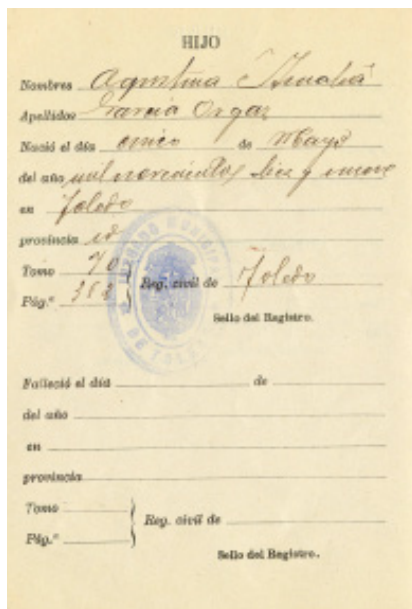 HIJO
Nombres Agustina Amalia
Apellidos García Orgaz
Nació el día cinco de Mayo
del año mil novecientos diez y nueve
en Toledo
provincia id
Tomo 70
Pág.ª 3 Reg. civil de Toledo
JUZGADO MUNICIPAL DE TOLEDO
Sello del Registro.
Falleció el día de
del año
en
provincia
Tomo
Reg. civil de
Pág.ª
Sello del Registro.